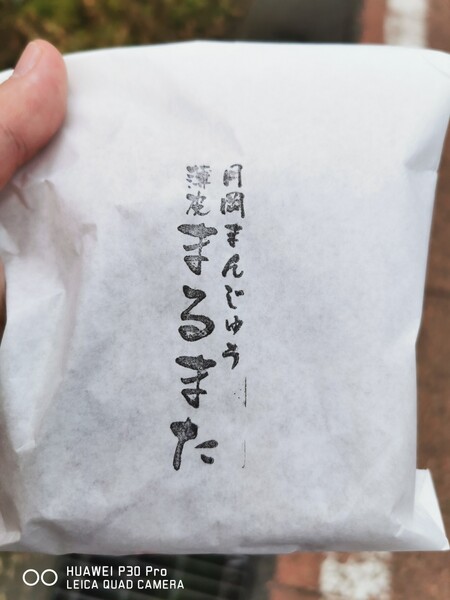 月岡まんじゅう
薄皮まるまた
HUAWEI P30 Pro
LEICA QUAD CAMERA